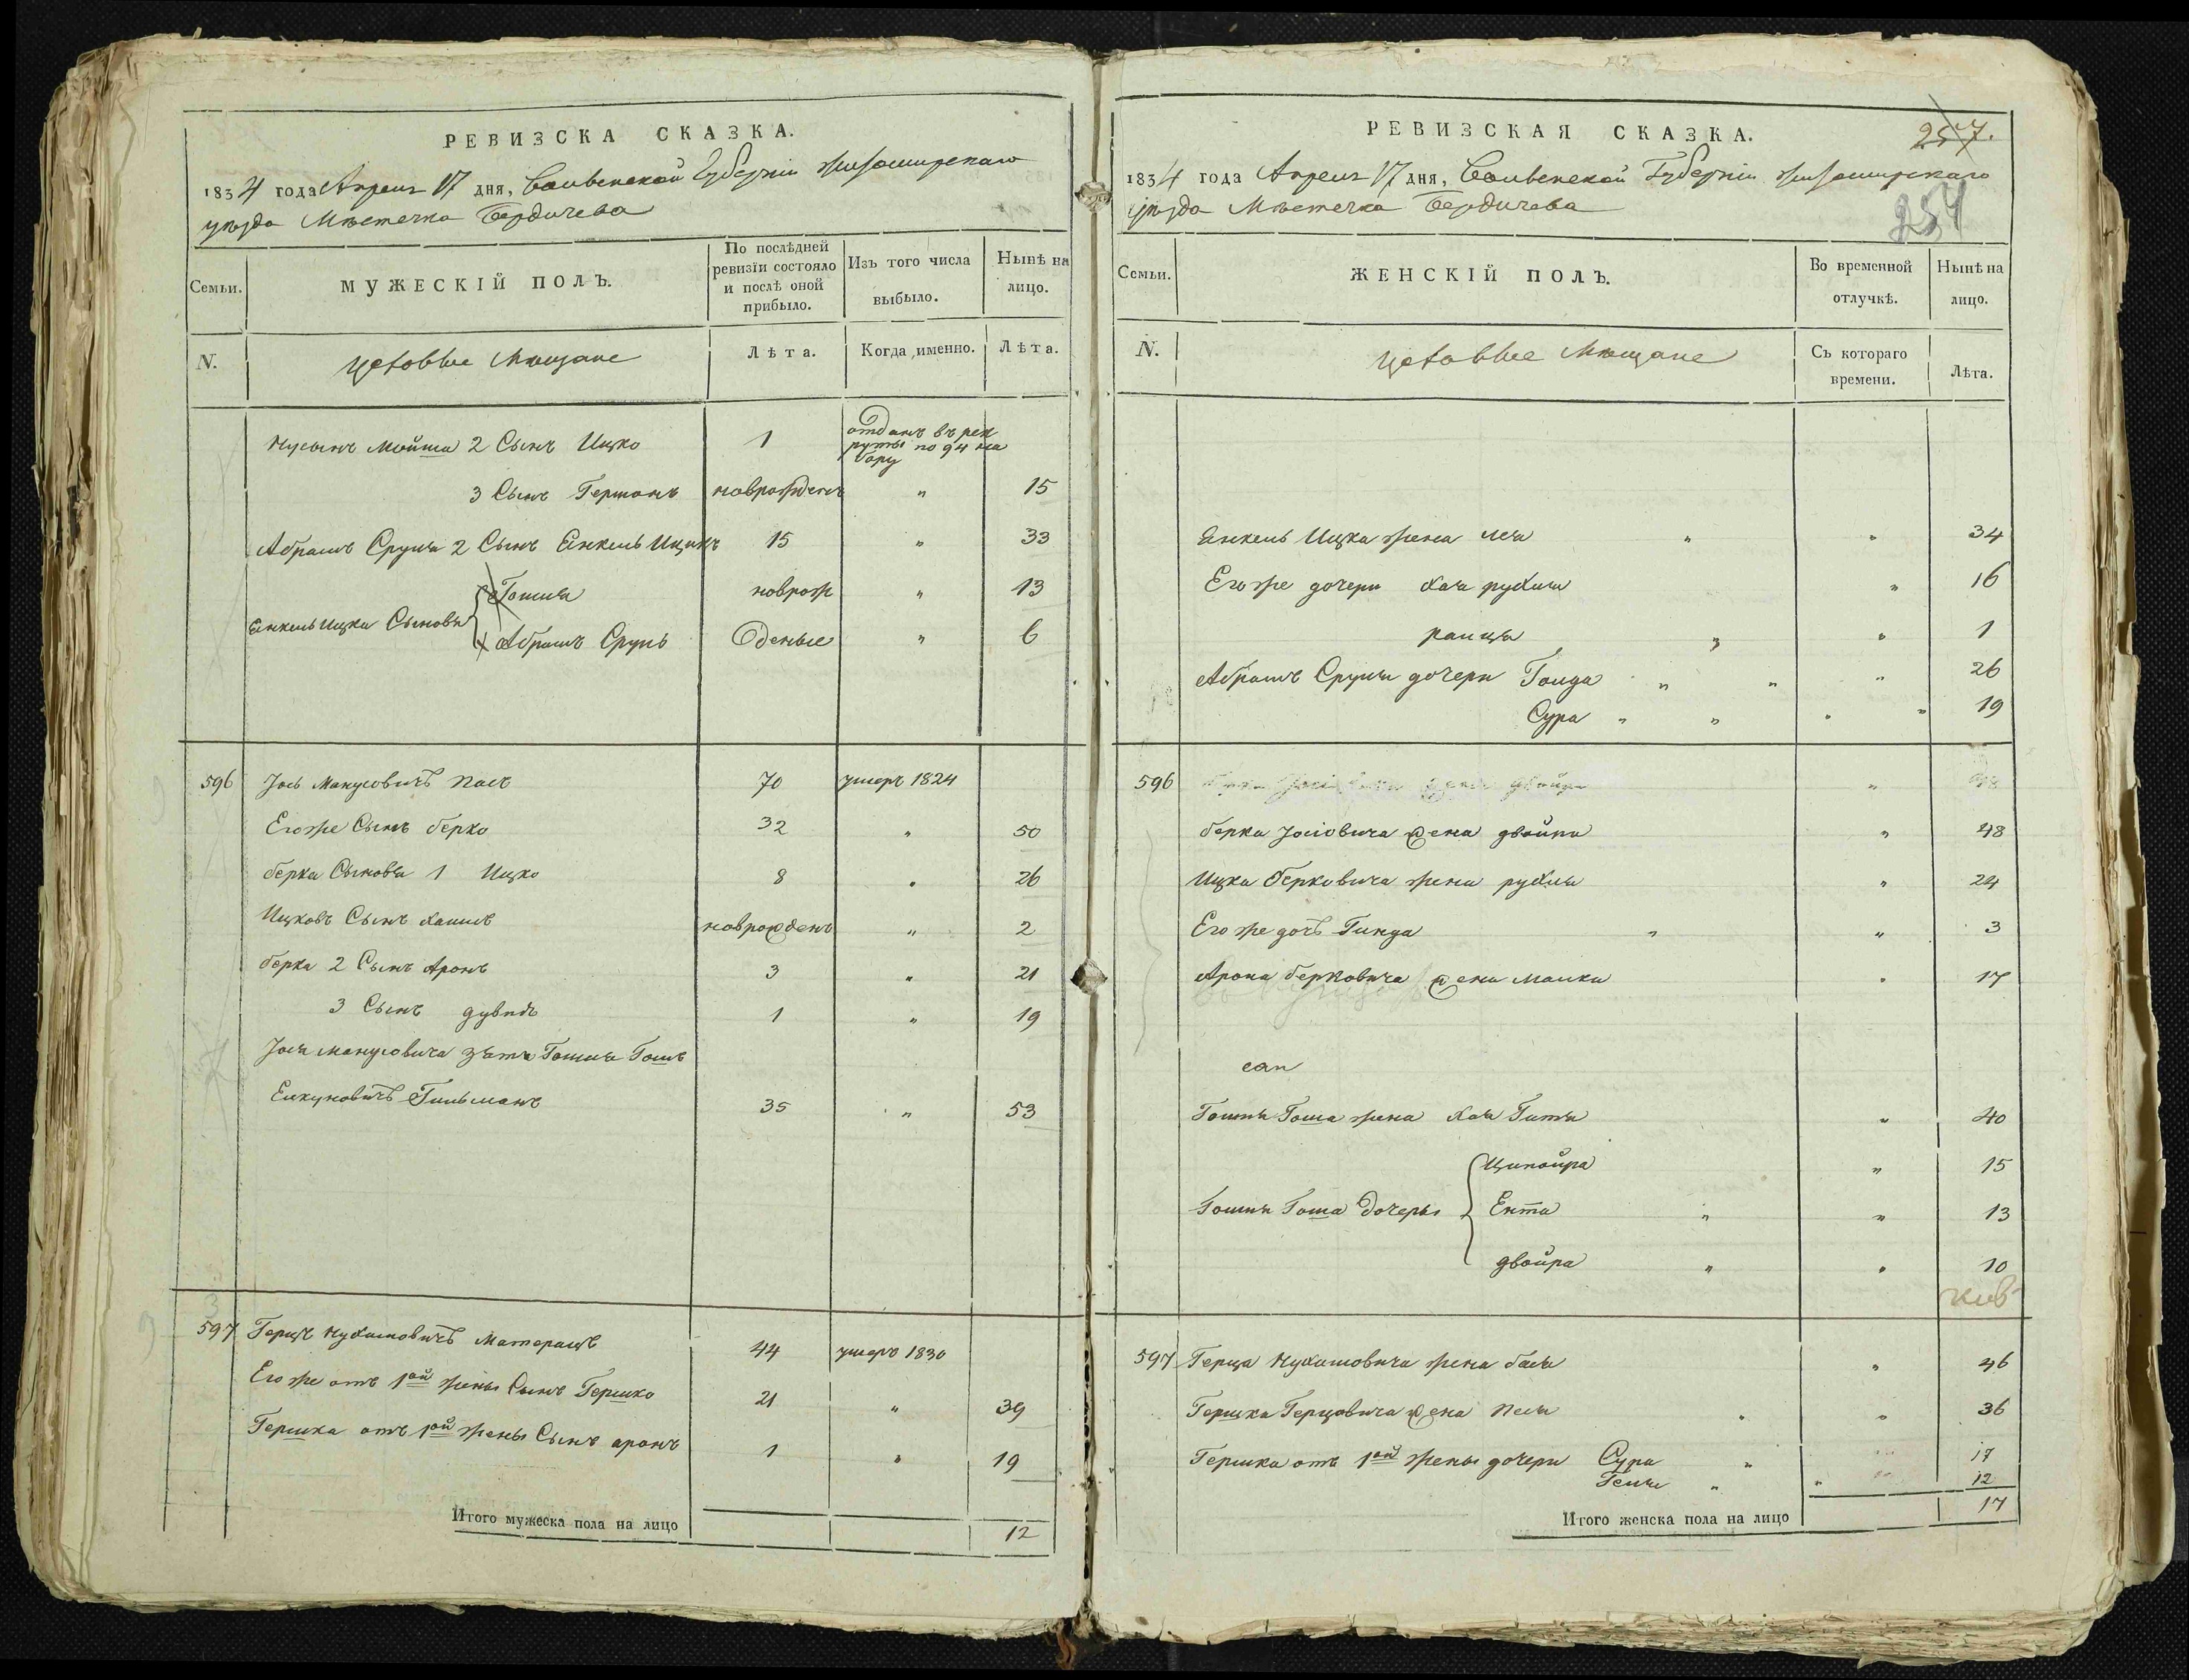 РЕВИЗСКА СКАЗКА.
1834 года Апреля 17 дня, Волынской Губерніи Житомирскаго
уѣзда Мѣстечка Бердичева
Семьи.
МУЖЕСКІЙ ПОЛЪ.
По послѣдней
ревизіи состояло
и послѣ оной
прибыло.
Изъ того числа
выбыло.
Нынѣ на
лицо.
N.
Цеховые Мѣщане
Лѣта.
Когда именно.
Лѣта.
Нусынъ Мойша 2 Сынъ Ицко 1 отданъ въ рек
руты по 94 на
бору
3 Сынъ Гершонъ новрожденъ " 15
Абрамъ Сруля 2 Сынъ Янкель Ицикъ 15 " 33
новрож " 13
Янкель Ицка Сыновя Абрамъ Сруль деные " 6
596 Іось Манусовичъ 70 умеръ 1824
Егоже Сынъ берко 32 " 50
берка Сыновя 1 Ицко 8 " 26
Ицковъ Сынъ Хаимъ новрожденъ " 2
берка 2 Сынъ Аронъ 3 " 21
3 Сынъ дувидъ 1 " 19
Іося манусовича зятъ
Гильманъ 35 " 53
597 Герцъ Нухимовичъ Матерацъ 44 умеръ 1830
Егоже отъ 1ой жены Сынъ Гершко 21 " 39
Гершка отъ 1ой жены Сынъ аронъ 1 " 19
Итого мужеска пола на лицо 12
РЕВИЗСКАЯ СКАЗКА.
257.
1834 года Апреля 17 дня, Волынской Губерніи Житомирскаго
уѣзда Мѣстечка Бердичева
254
Семьи.
ЖЕНСКІЙ ПОЛЪ.
Во временной
отлучкѣ.
Нынѣ на
лицо.
N.
Цеховые Мѣщане
Съ котораго
времени.
Лѣта.
Янкель Ицка жена Лея " " 34
Егоже дочери Хая рухля " 16
раица " " 1
Абрамъ Сруля дочери Голда " " " 26
Сура " " " " 19
596
берка Іосіовича жена двойра " 48
Ицка берковича жена рухля " 24
Его же дочъ Гинда " " 3
Арона берковича жена малка " 17
жена Хая Гитля " 40
Ципойра " 15
дочеры Ента " " 13
двойра " " 10
597 Герца Нухимовича жена бася " 46
Гершка Герцовича жена Песя " " 36
Гершка отъ 1ой жены дочери Сура " " 17
" " 12
Итого женска пола на лицо 17